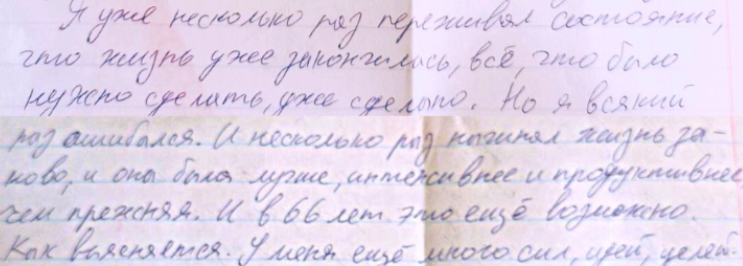 Я уже несколько раз переживал состояние,
что жизнь уже закончилась, всё, что было
нужно сделать, уже сделано. Но я всякий
раз ошибался. И несколько раз начинал жизнь за-
ново, и она была лучше, интенсивнее и продуктивнее
чем прежняя. И в 66 лет это ещё возможно.
Как выясняется. У меня ещё много сил, идей, целей.